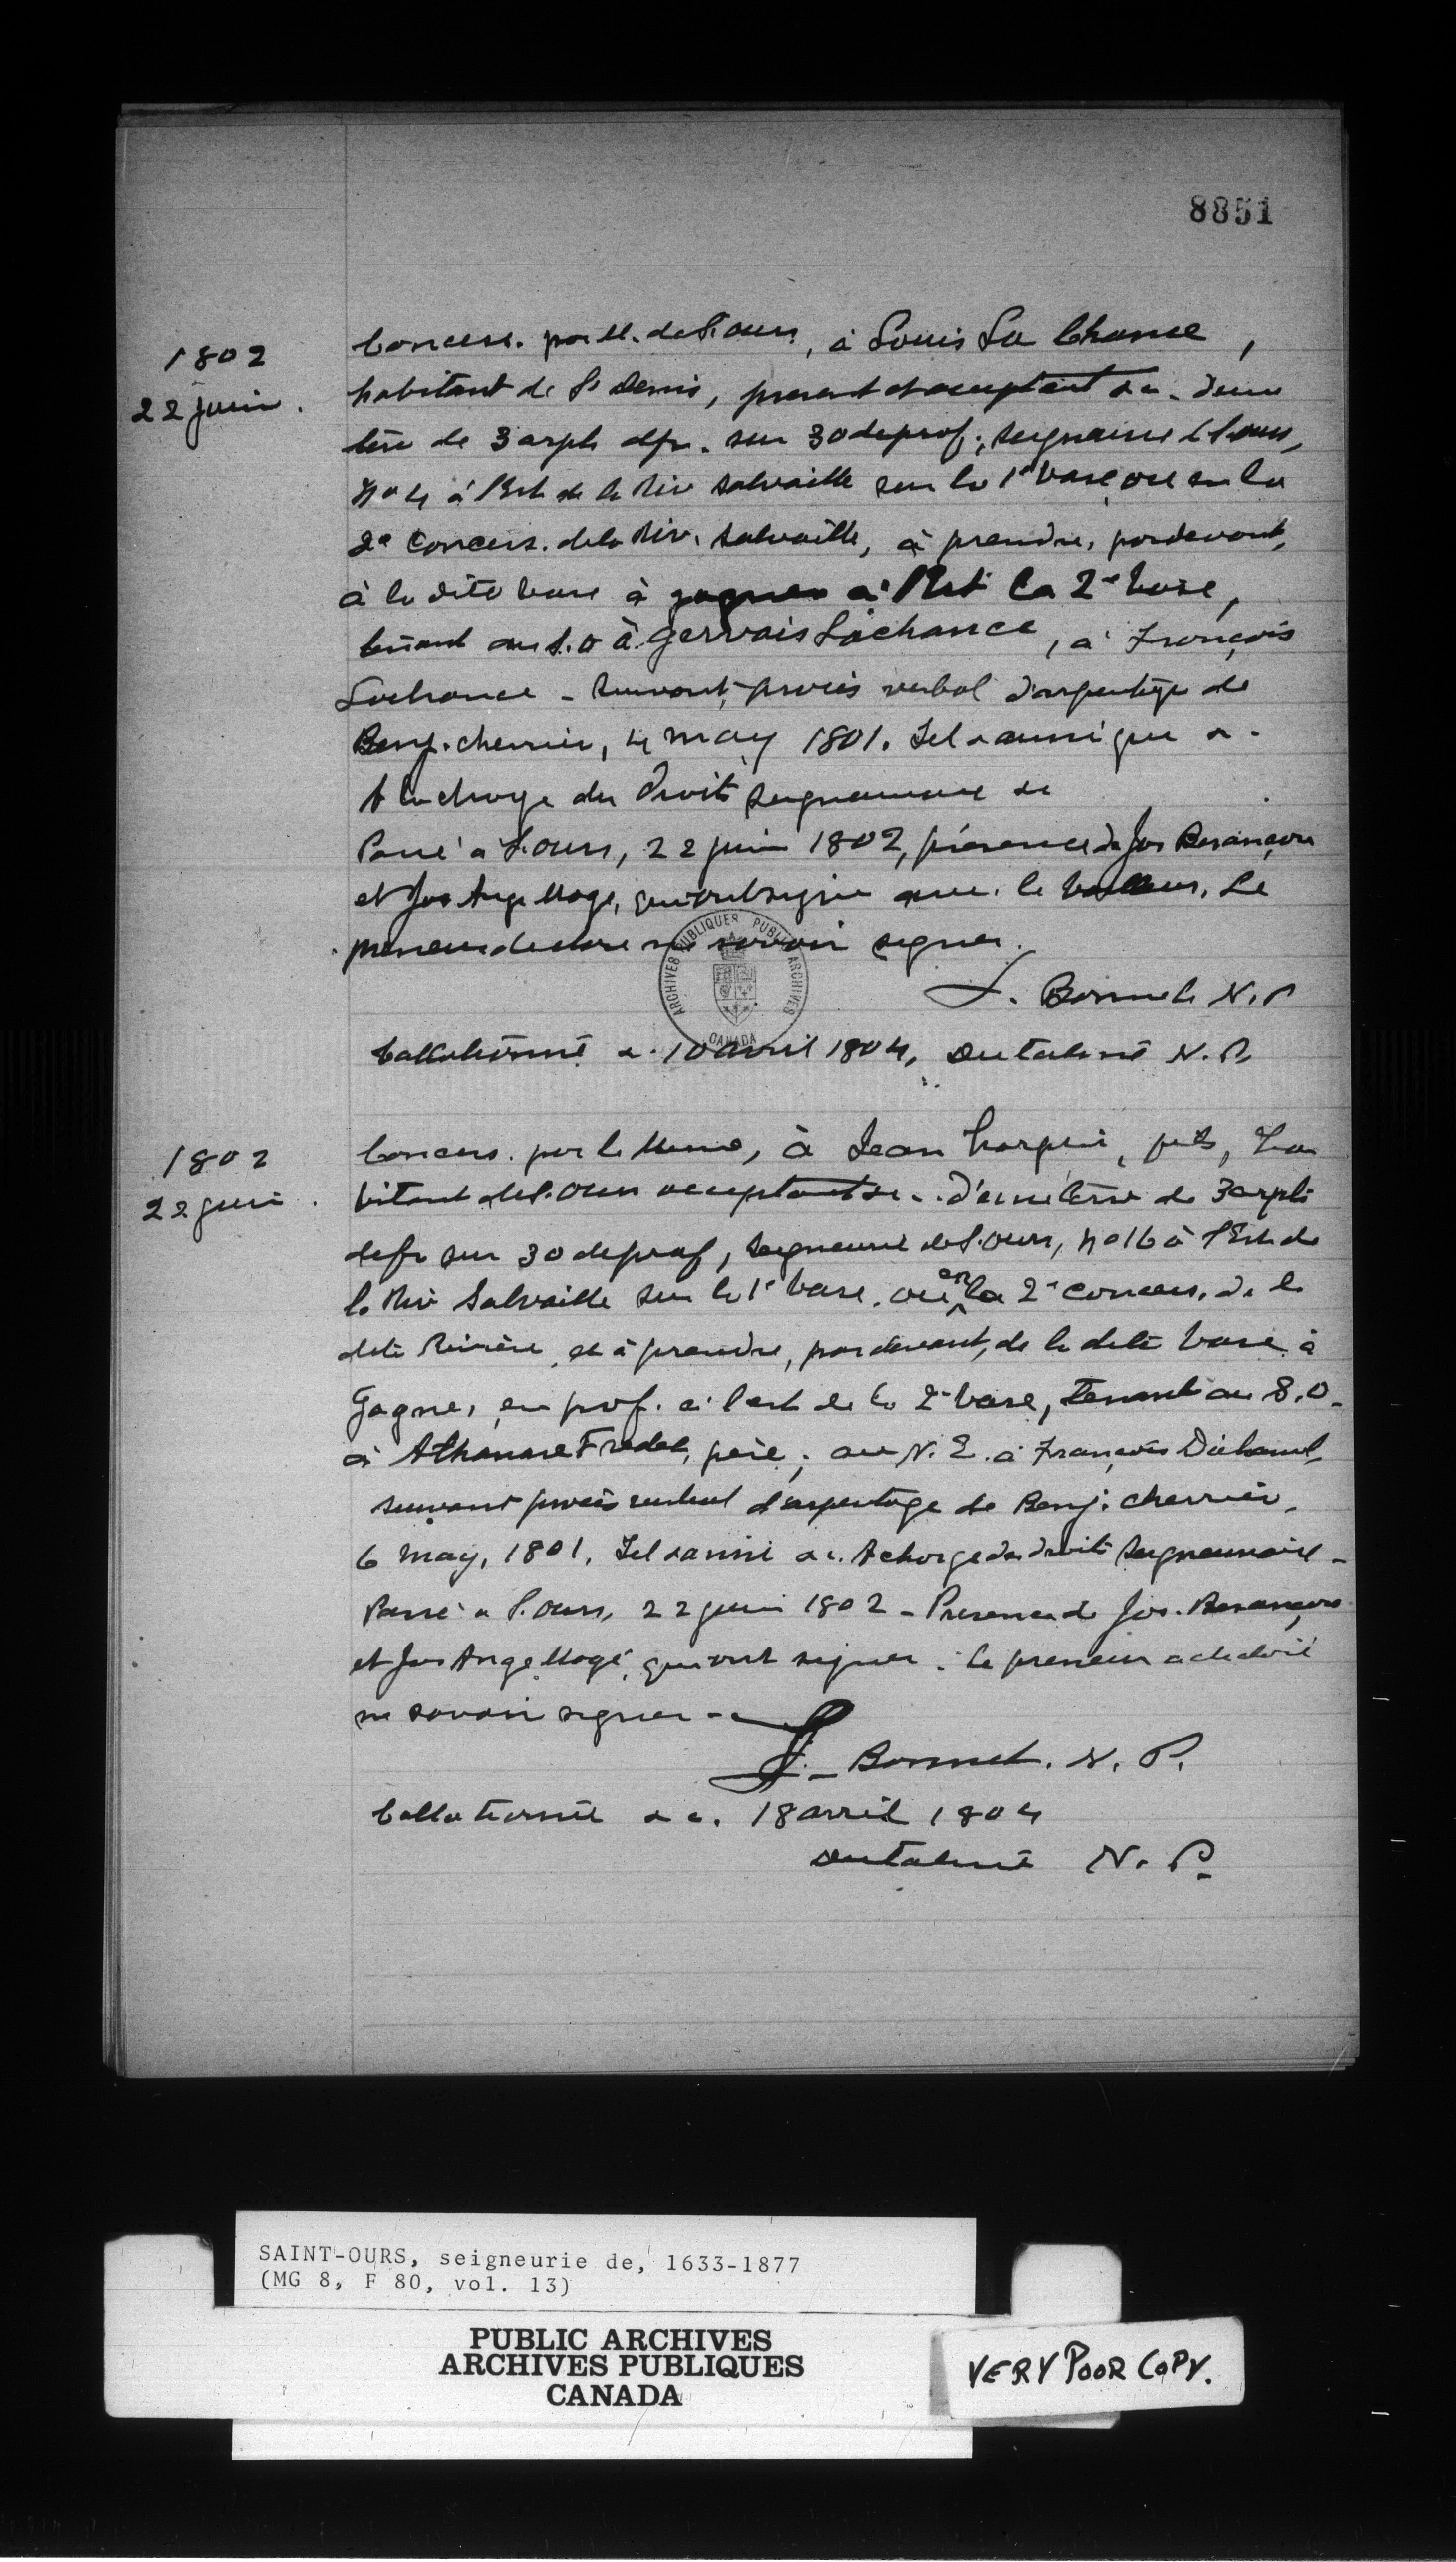 8851
1802
22 juin.
Concess. par M. de St Ours, à Louis La Chance,
habitant de St Denis, present et acceptant &c. d'une
terre de 3 arpts de fr. sur 30 de prof., seigneurie St Ours,
No 4 à l'Est de la Riv Salvaille sur la 1e base ou en la
2e Concess. de la Riv. Salvaille, à prendre, par devant,
à la dite base à gagner à l'Est la 2e base,
tenant au S.O à Gervais Lachance, à François
Lachance - suivant procès verbal d'arpentage de
Benj. cherrier, 4 may 1801. Tel & ainsi que &.
A la charge des Droits seigneuriaux &c
Passé à St. Ours, 22 juin 1802, présence de Jos Besançon
et Jos Ange Mage, qui ont signé avec le bailleur. Le
preneur declare ne savoir signer.
L. Bonnet N.P
Collationné &. 10 avril 1804, Dutalmé N.P.
ARCHIVES PUBLIQUES PUBLIC ARCHIVES
CANADA
1802
22 juin.
Concess. par le Meme, à Jean Harpin, fils, ha
bitant de St. Ours acceptant &c. d'une terre de 3 arpts
de fr sur 30 de prof, seigneurie de St. Ours, No 16 à l'Est de
la Riv Salvaille sur la 1e base. ou en la 2e concess. de la
dite Rivière et à prendre, par devant, de la dite base à
Gagner en prof. à l'est de la 2e base, tenant au S.O.
à Athanase Fredet, père; au N.E. à François Duhamel,
suivant procès verbal d'arpentage de Benj. cherrier,
6 may, 1801. Tel & ainsi &c. A charge des droits seigneuriaux -
Passé à St. Ours, 22 juin 1802 - Presence de Jos. Besançon
et Jos Ange Magé, qui ont signer. Le preneur a declaré
ne savoir signer -
L - Bonnet. N. P.
Collationné &c. 18 avril 1804
Dutalmé N. P.
SAINT-OURS, seigneurie de, 1633-1877
(MG 8, F 80, vol. 13)
PUBLIC ARCHIVES
ARCHIVES PUBLIQUES
CANADA
VERY POOR COPY.